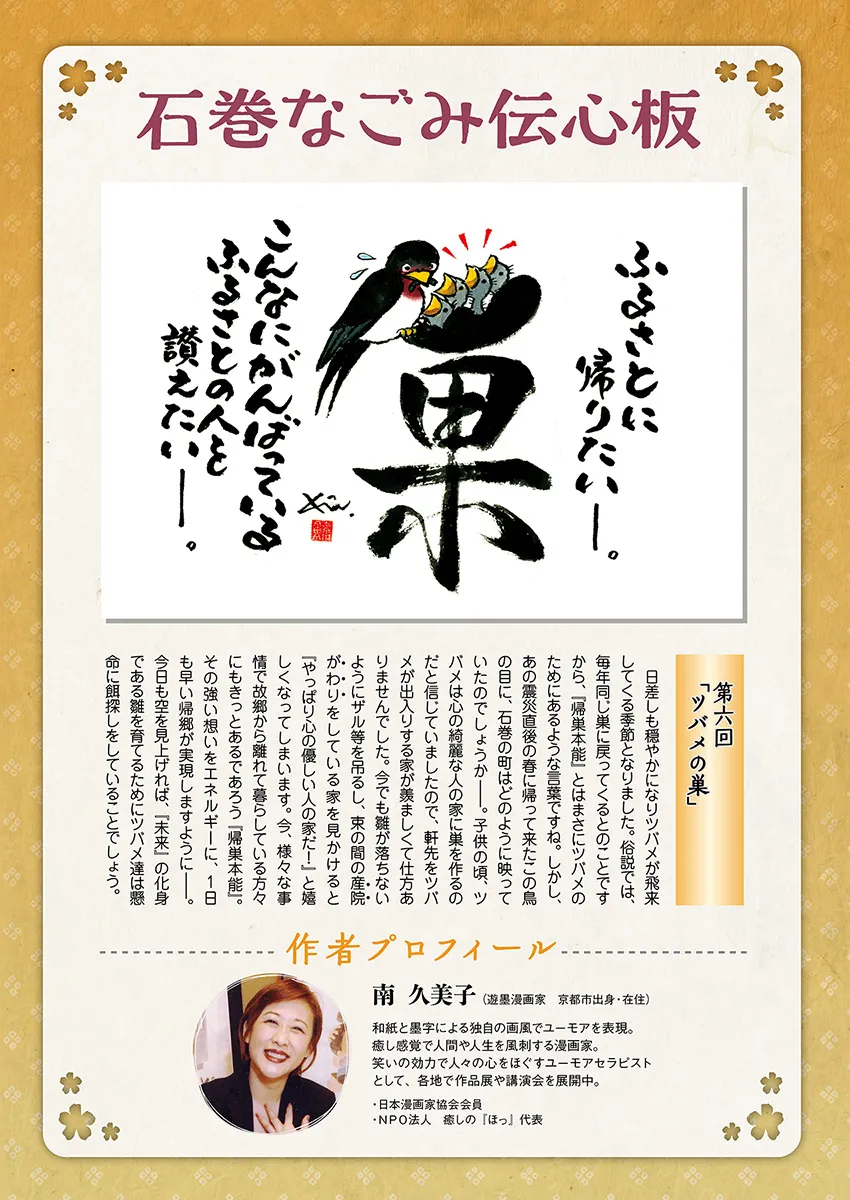 石巻なごみ伝心板
ふるさとに
帰りたい―。
巣
こんなにがんばっている
ふるさとの人を
讃えたい―。
第六回
「ツバメの巣」
日差しも穏やかになりツバメが飛来
してくる季節となりました。俗説では、
毎年同じ巣に戻ってくるとのことです
から、『帰巣本能』とはまさにツバメの
ためにあるような言葉ですね。しかし、
あの震災直後の春に帰って来たこの鳥
の目に、石巻の町はどのように映って
いたのでしょうか―。子供の頃、ツ
バメは心の綺麗な人の家に巣を作るの
だと信じていましたので、軒先をツバ
メが出入りする家が羨ましくて仕方あ
りませんでした。今でも雛が落ちない
ようにザル等を吊るし、束の間の産院
がわりをしている家を見かけると
『やっぱり心の優しい人の家だ！』と嬉
しくなってしまいます。今、様々な事
情で故郷から離れて暮らしている方々
にもきっとあるであろう『帰巣本能』。
その強い想いをエネルギーに、1日
も早い帰郷が実現しますように―。
今日も空を見上げれば、『未来』の化身
である雛を育てるためにツバメ達は懸
命に餌探しをしていることでしょう。
作者プロフィール
南 久美子（遊墨漫画家 京都市出身・在住）
和紙と墨字による独自の画風でユーモアを表現。
癒し感覚で人間や人生を風刺する漫画家。
笑いの効力で人々の心をほぐすユーモアセラピスト
として、各地で作品展や講演会を展開中。
・日本漫画家協会会員
・NPO法人 癒しの『ほっ』代表